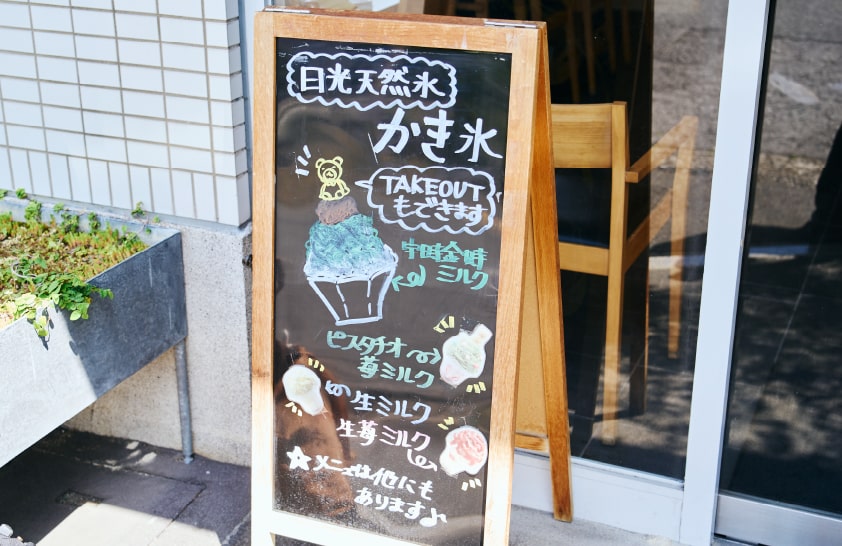 日光天然氷
かき氷
TAKEOUT
もできます
宇田金時
ミルク
ピスタチオ
苺ミルク
生ミルク
生苺ミルク
☆メニューは他にも
あります♪